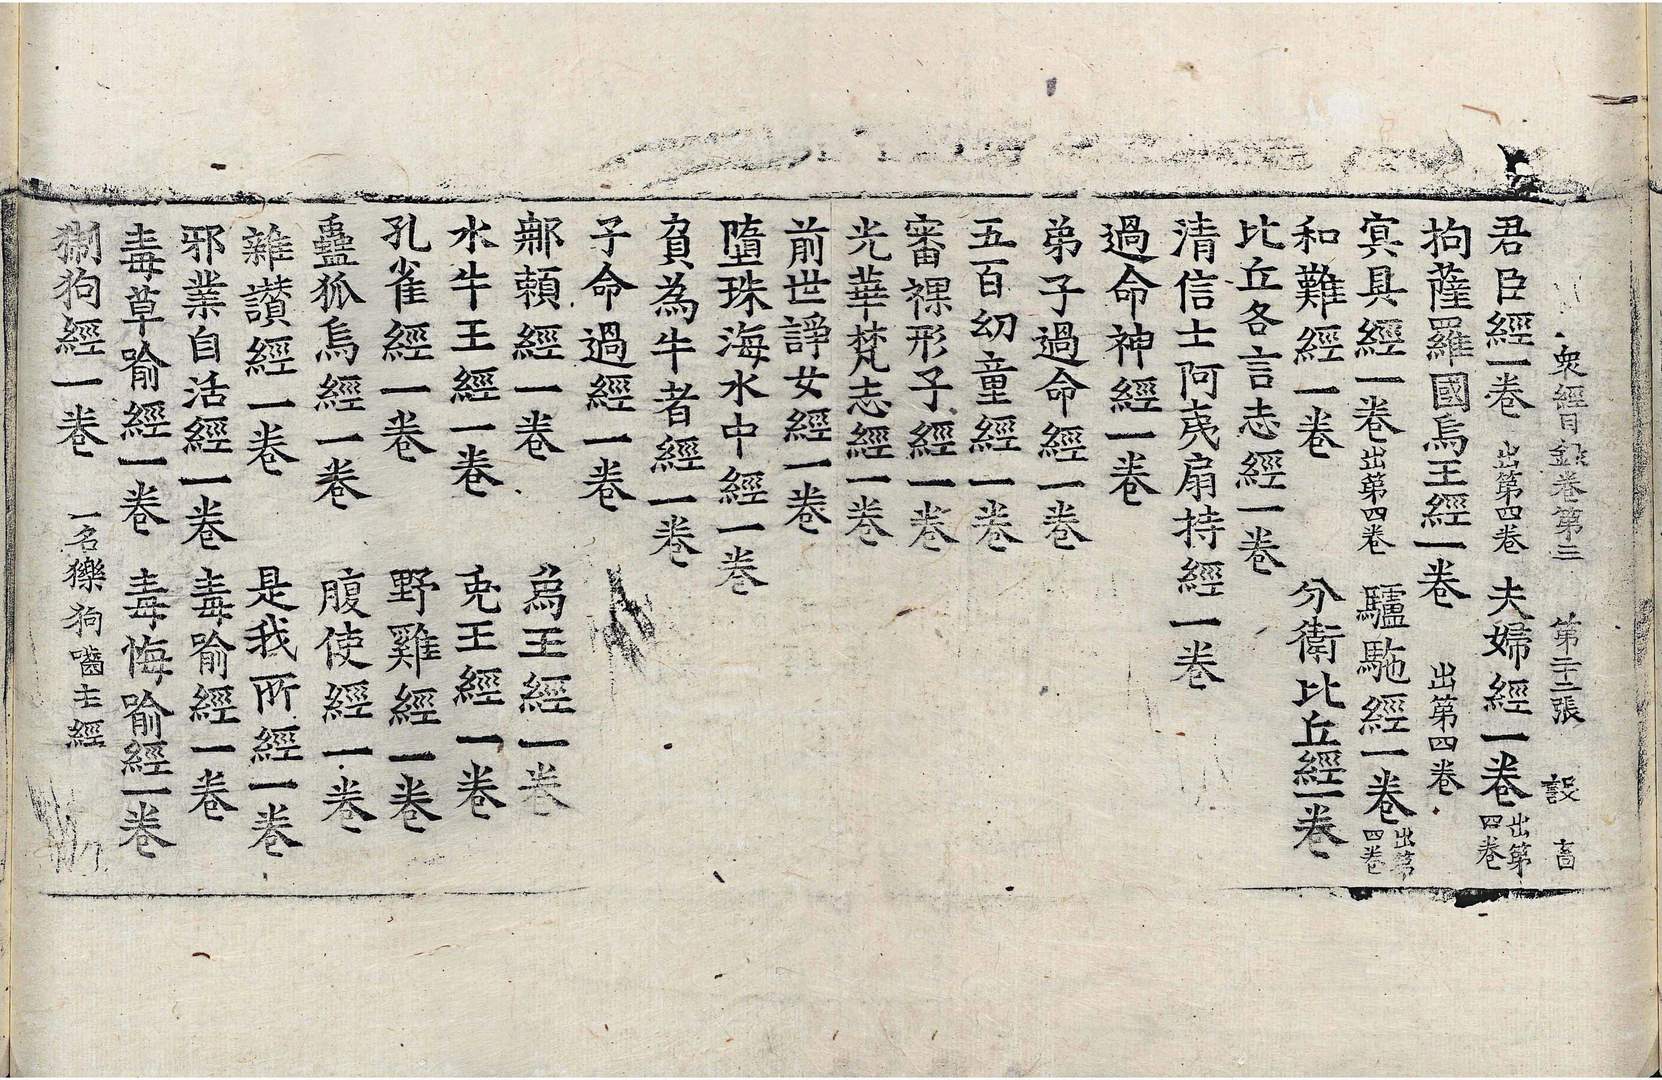 衆經目錄卷第三 第二十二張 設 畜
君臣經一卷 出第四卷 夫婦經一卷 出第四卷
拘薩羅國烏王經一卷 出第四卷
寘具經一卷 出第四卷 驢駞經一卷 出第四卷
和難經一卷 分衛比丘經一卷
比丘各言志經一卷
清信士阿夷扇持經一卷
過命神經一卷
弟子過命經一卷
五百幼童經一卷
審裸形子經一卷
光華梵志經一卷
前世諍女經一卷
墮珠海水中經一卷
負為牛者經一卷
子命過經一卷
鄁頼經一卷 烏王經一卷
水牛王經一卷 兎王經一卷
孔雀經一卷 野雞經一卷
蠱狐烏經一卷 腹使經一卷
雜讃經一卷 是我所經一卷
邪業自活經一卷 毒喻經一卷
毒草喻經一卷 毒悔喻經一卷
猘狗經一卷 一名㹊狗嚙主經